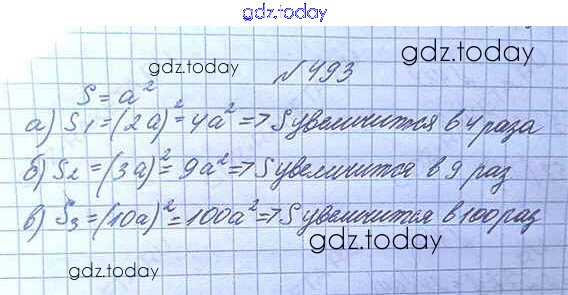 gdz.today
gdz.today gdz.today
№493
S = a²
а) S₁ = (2a)² = 4a² => S увеличится в 4 раза
б) S₂ = (3a)² = 9a² => S увеличится в 9 раз
в) S₃ = (10a)² = 100a² => S увеличится в 100 раз
gdz.today gdz.today